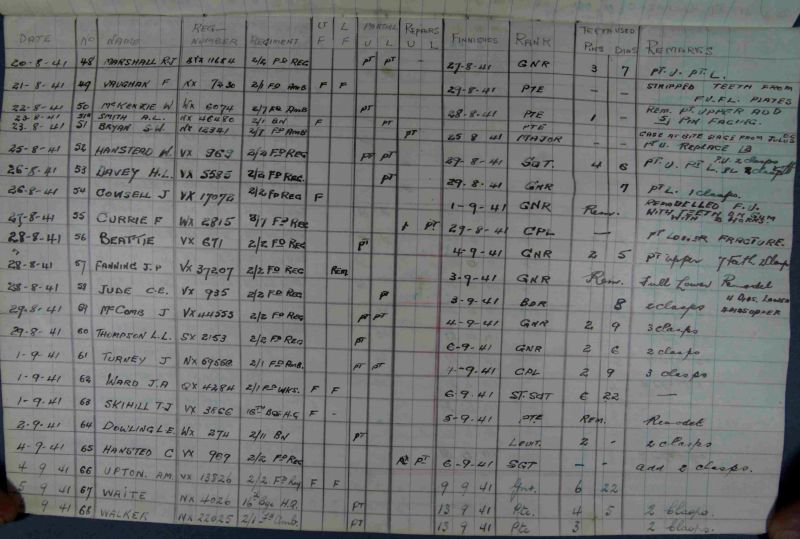 DATE NO NAME REG- NUMBER REGIMENT U F L F PARTIAL U L REPAIRS U L FINNISHED RANK TEETH USED PINS DIAS REMARKS
20-8-41 48 MARSHALL R.J 11684 2/2 FD REG PT PT - 27-8-41 GNR 3 7 PT. U. PT. L.
21-8-41 49 VAUGHAN F 7430 2/1 FD AMB F F 29-8-41 PTE - - STRIPPED TEETH FROM F.U. F.L. PLATES
22-8-41 50 McKENZIE W WX 6074 2/7 FD AMB PT 28-8-41 PTE 1 - REM. PT. UPPER ADD 5| PIN FACING.
23-8-41 SMITH A.L. NX 2/1 BN PT PTE
23.8-41 51 BRYAN S.W. NX 12341 2/1 FD AMB PT 25 8 41 MAJOR - - PT U. REPLACE
25-8-41 52 HANSTEAD W. VX 969 2/2 FD REG PT PT 29-8-41 SGT. 4 6 PT. U. PT L.
26-8-41 53 DAVEY H.L. VX 5585 2/2 FD REG PT 29.8-41 GNR 7 PT L. 1 clasps.
26-8-41 54 COWSELL J VX 17072 2/2 FD REG F 1-9-41 GNR Rem. REMODELLED F.U. WITH
27-8-41 55 CURRIE F WX 2815 FD REG PT 29-8-41 CPL - PT LOWER FRACTURE.
28-8-41 56 BEATTIE VX 671 2/2 FD REG PT 4-9-41 GNR 2 5 pt upper 7 teeth 2 clasps
" 28-8-41 57 FANNING J.P VX 37207 2/2 FD REG REM 3-9-41 GNR Rem. Full Lower Remodel
28-8-41 58 JUDE C.E. VX 935 2/2 FD REG PT 3-9-41 BDR 8 2 clasps 4 DIAS. LOWER
29.8-41 59 McCOMB J VX 44553 2/2 FD REG PT PT 4-9-41 GNR 2 9 3 clasps
29-8-41 60 THOMPSON L.L. SX 2153 2/2 FD REG PT 6-9-41 GNR 2 6 2 clasps
1-9-41 61 TURNEY J NX 2/1 FD AMB. PT PT 1-9-41 CPL 2 9 3 clasps
1-9-41 62 WARD J.A QX 4284 2/1 FD WKS. F F 6-9-41 ST. SGT 6 22 -
1-9-41 63 SKIHILL T.J VX 3866 16TH BGE H.Q F - 5-9-41 PTE REM. Remodel
2-9-41 64 DOWLING E. WX 274 2/11 BN PT LEUT. 2 - 2 clasps
4-9-41 65 HANSTED C VX 969 2/2 FD REG PT 6-9-41 SGT - - add 2 clasps.
4 9 41 66 UPTON. A.M. VX 13826 2/2 FD Reg F F 9 9 41 Gnr. 6 22
5 9 41 67 WAITE NX 4026 16th Bge H.Q. PT 13 9 41 Pte. 4 5 2 clasps.
9 41 68 WALKER NX 22025 2/1 FD Amb. PT 13 9 41 Pte 3 2 clasps.